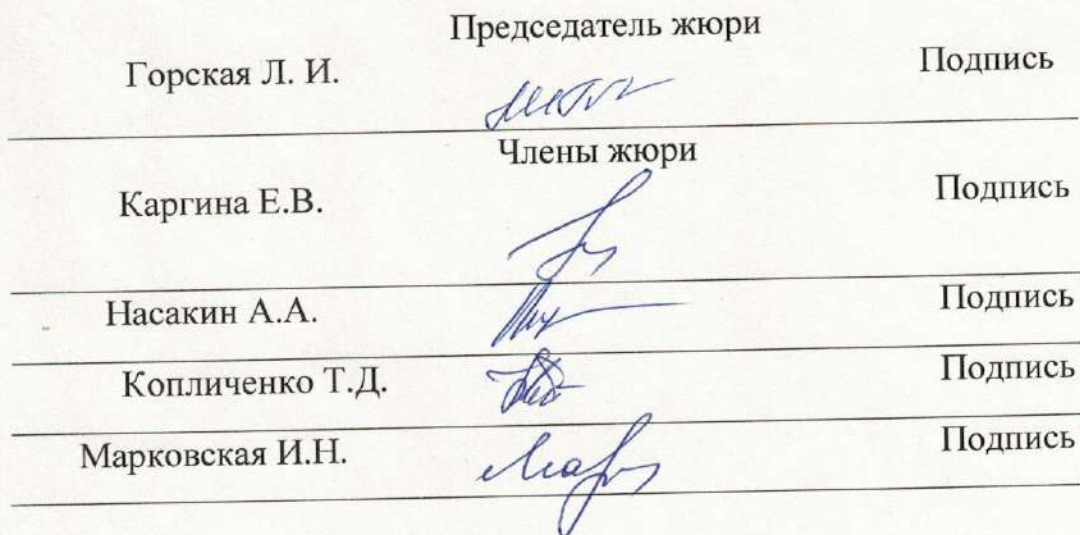 Председатель жюри
Горская Л. И. Подпись
Члены жюри
Каргина Е.В. Подпись
Насакин А.А. Подпись
Копличенко Т.Д. Подпись
Марковская И.Н. Подпись